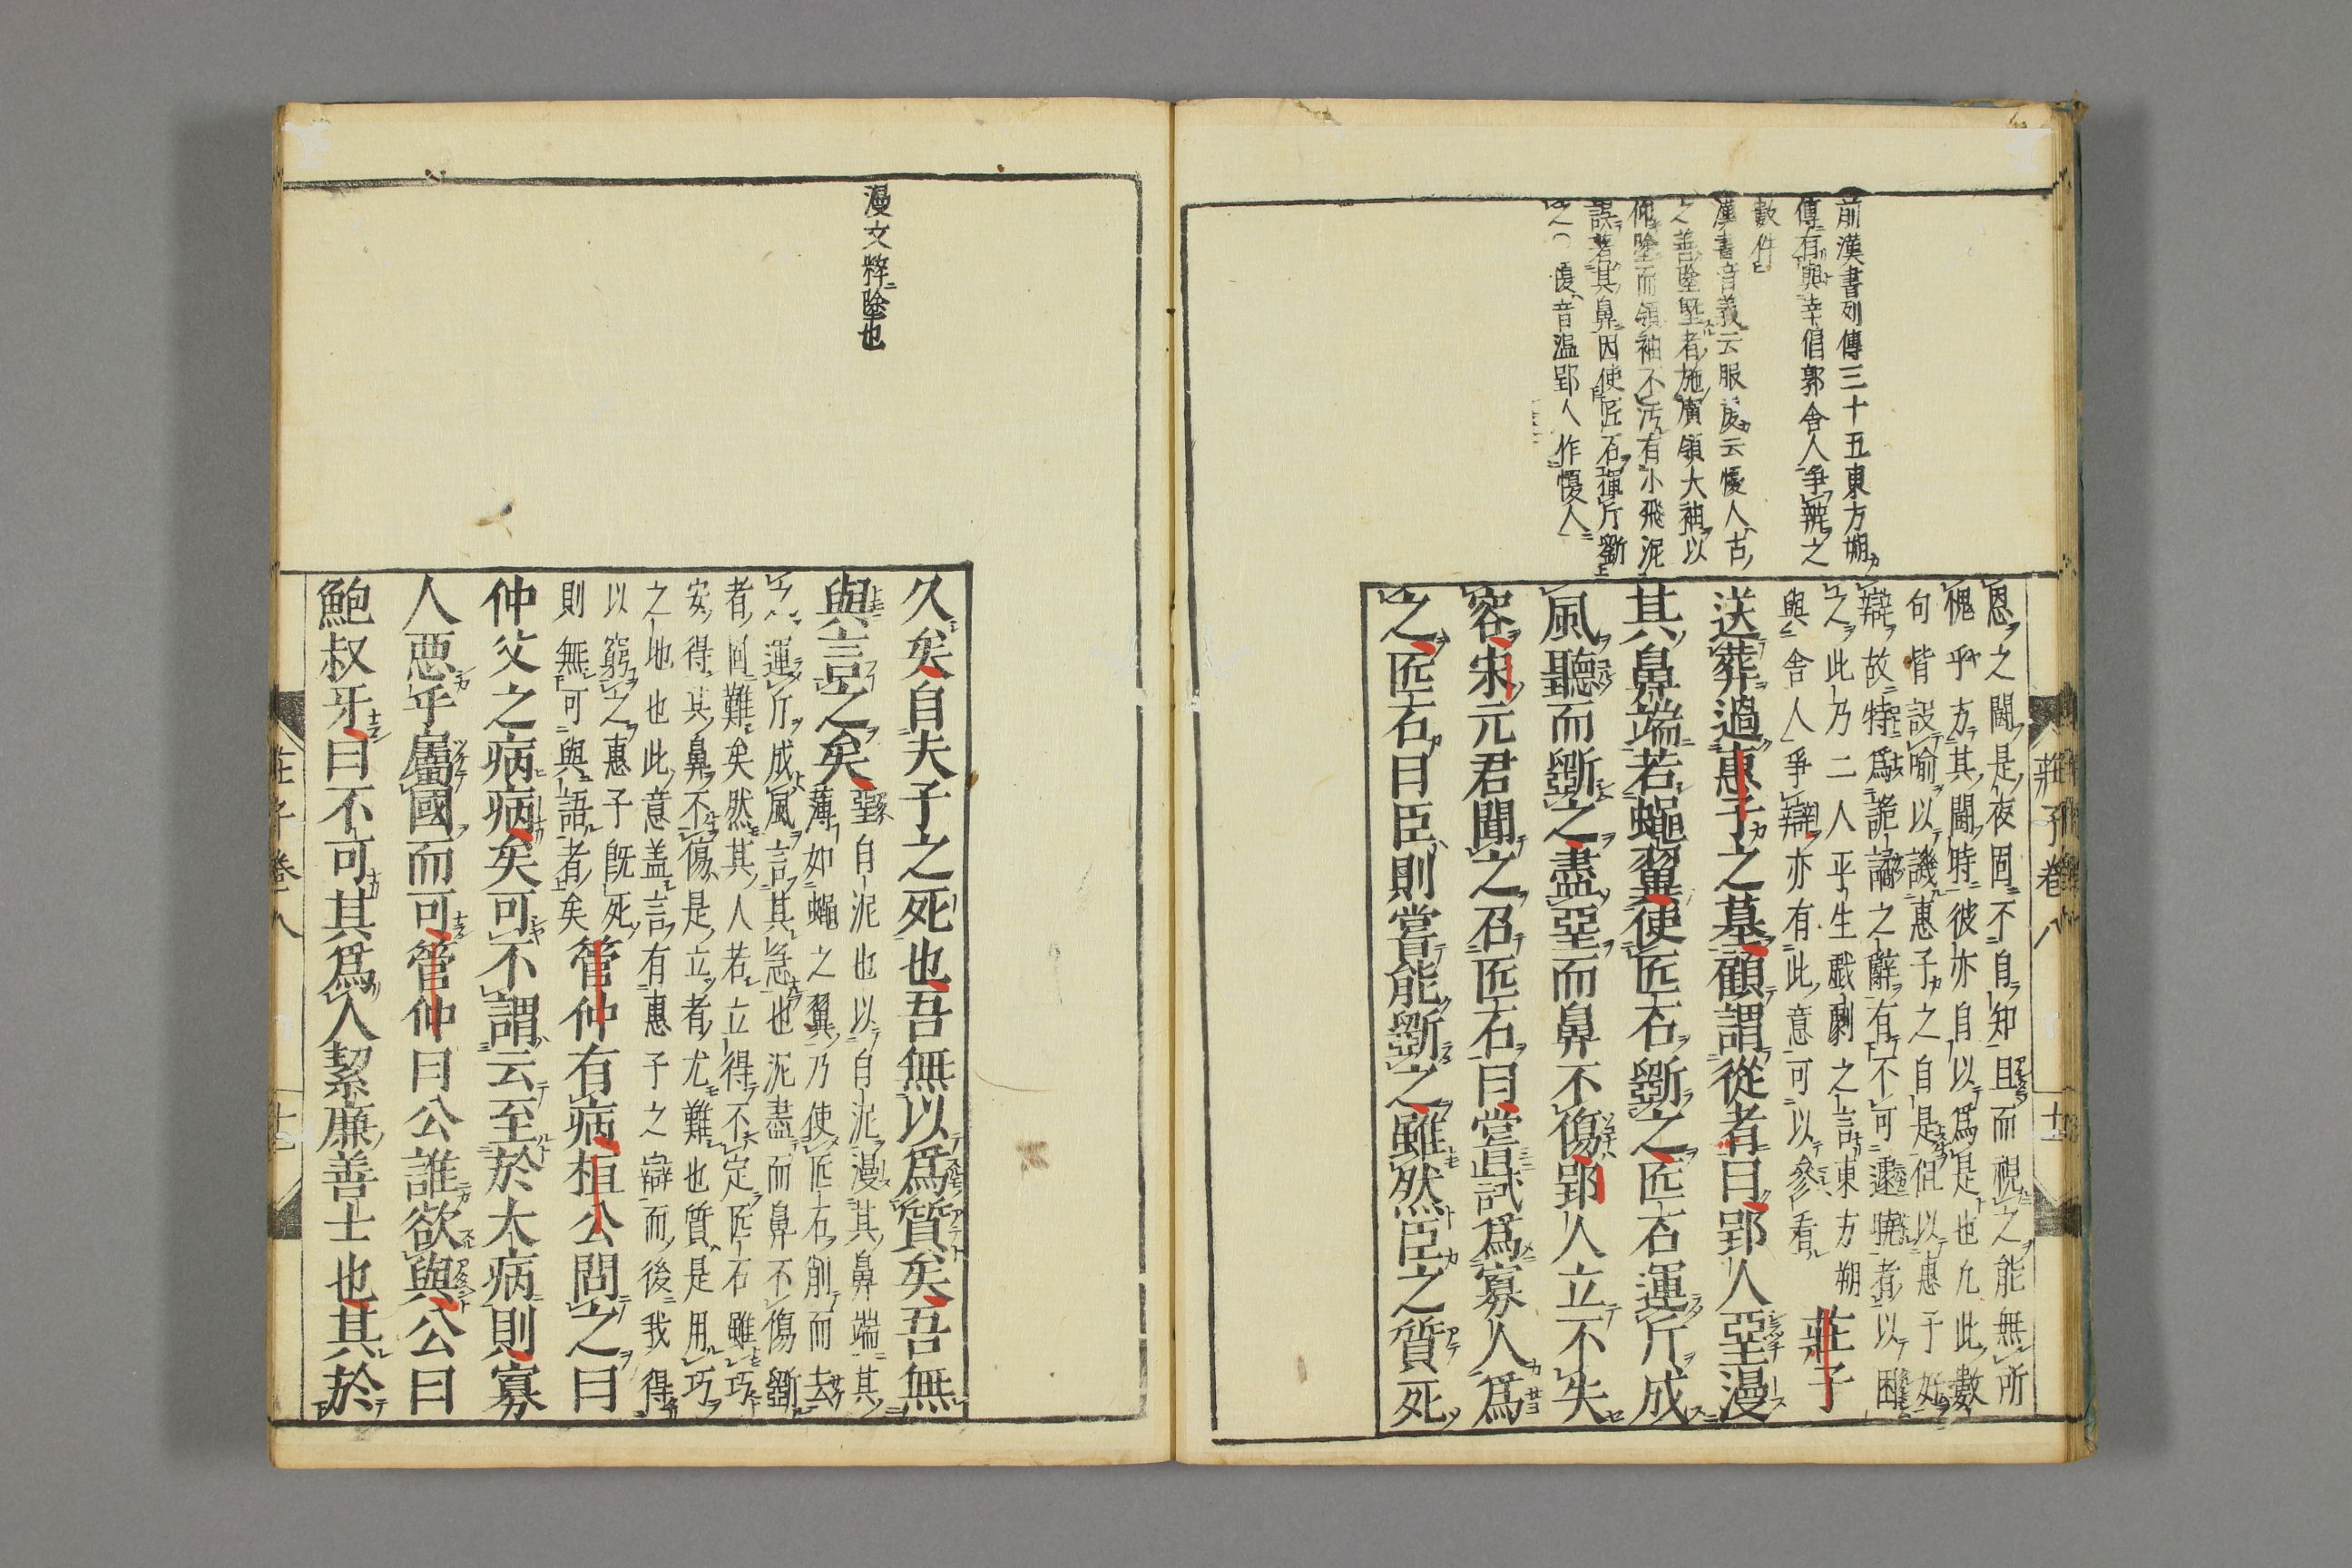 前漢書列傳三十五東方朔
傳有與幸倡郭舍人爭辨之
數件
漢書音義云服虔云慢人古
之善塗墍者施廣領大袖以
仰塗而領袖不汚有小飛泥
誤著其鼻因使匠石揮斤斲
之○慢音温郢人作慢人
恩之闘是夜固不自知且而視之能無所
愧乎方其闘時彼亦自以為是也允此數
句皆設喻以譏惠子之自是但以惠于好
辯故特為詭譎之辭有不可遽曉者以困
之此乃二人平生戲劇之言東方朔
與舍人爭辯亦有此意可以參看
莊子
送葬過惠子之墓顧謂從者曰郢人堊漫
其鼻端若蠅翼使匠石斲之匠石運斤成
風聽而斲之盡堊而鼻不傷郢人立不失
容宋元君聞之召匠石曰嘗試爲寡人爲
之匠石曰臣則嘗能斲之雖然臣之質死
莊子卷八
漫文粹塗也
久矣自夫子之死也吾無以爲質矣吾無
與言之矣
堊自泥也以自泥漫其鼻端其
薄如蠅之翼乃使匠石削而去
之運斤成風言其急也泥盡而鼻不傷斲
者固難矣然其人若立得不定匠石雖巧
安得其鼻不傷是立者尤難也質是用巧
之地也此意盖言有惠子之辯而後我得
以窮之惠子旣死
則無可與語者矣
管仲有病桓公問之曰
仲父之病病矣可不謂云至於大病則寡
人惡乎屬國而可管仲曰公誰欲與公曰
鮑叔牙曰不可其爲人絜廉善士也其於
莊子卷八